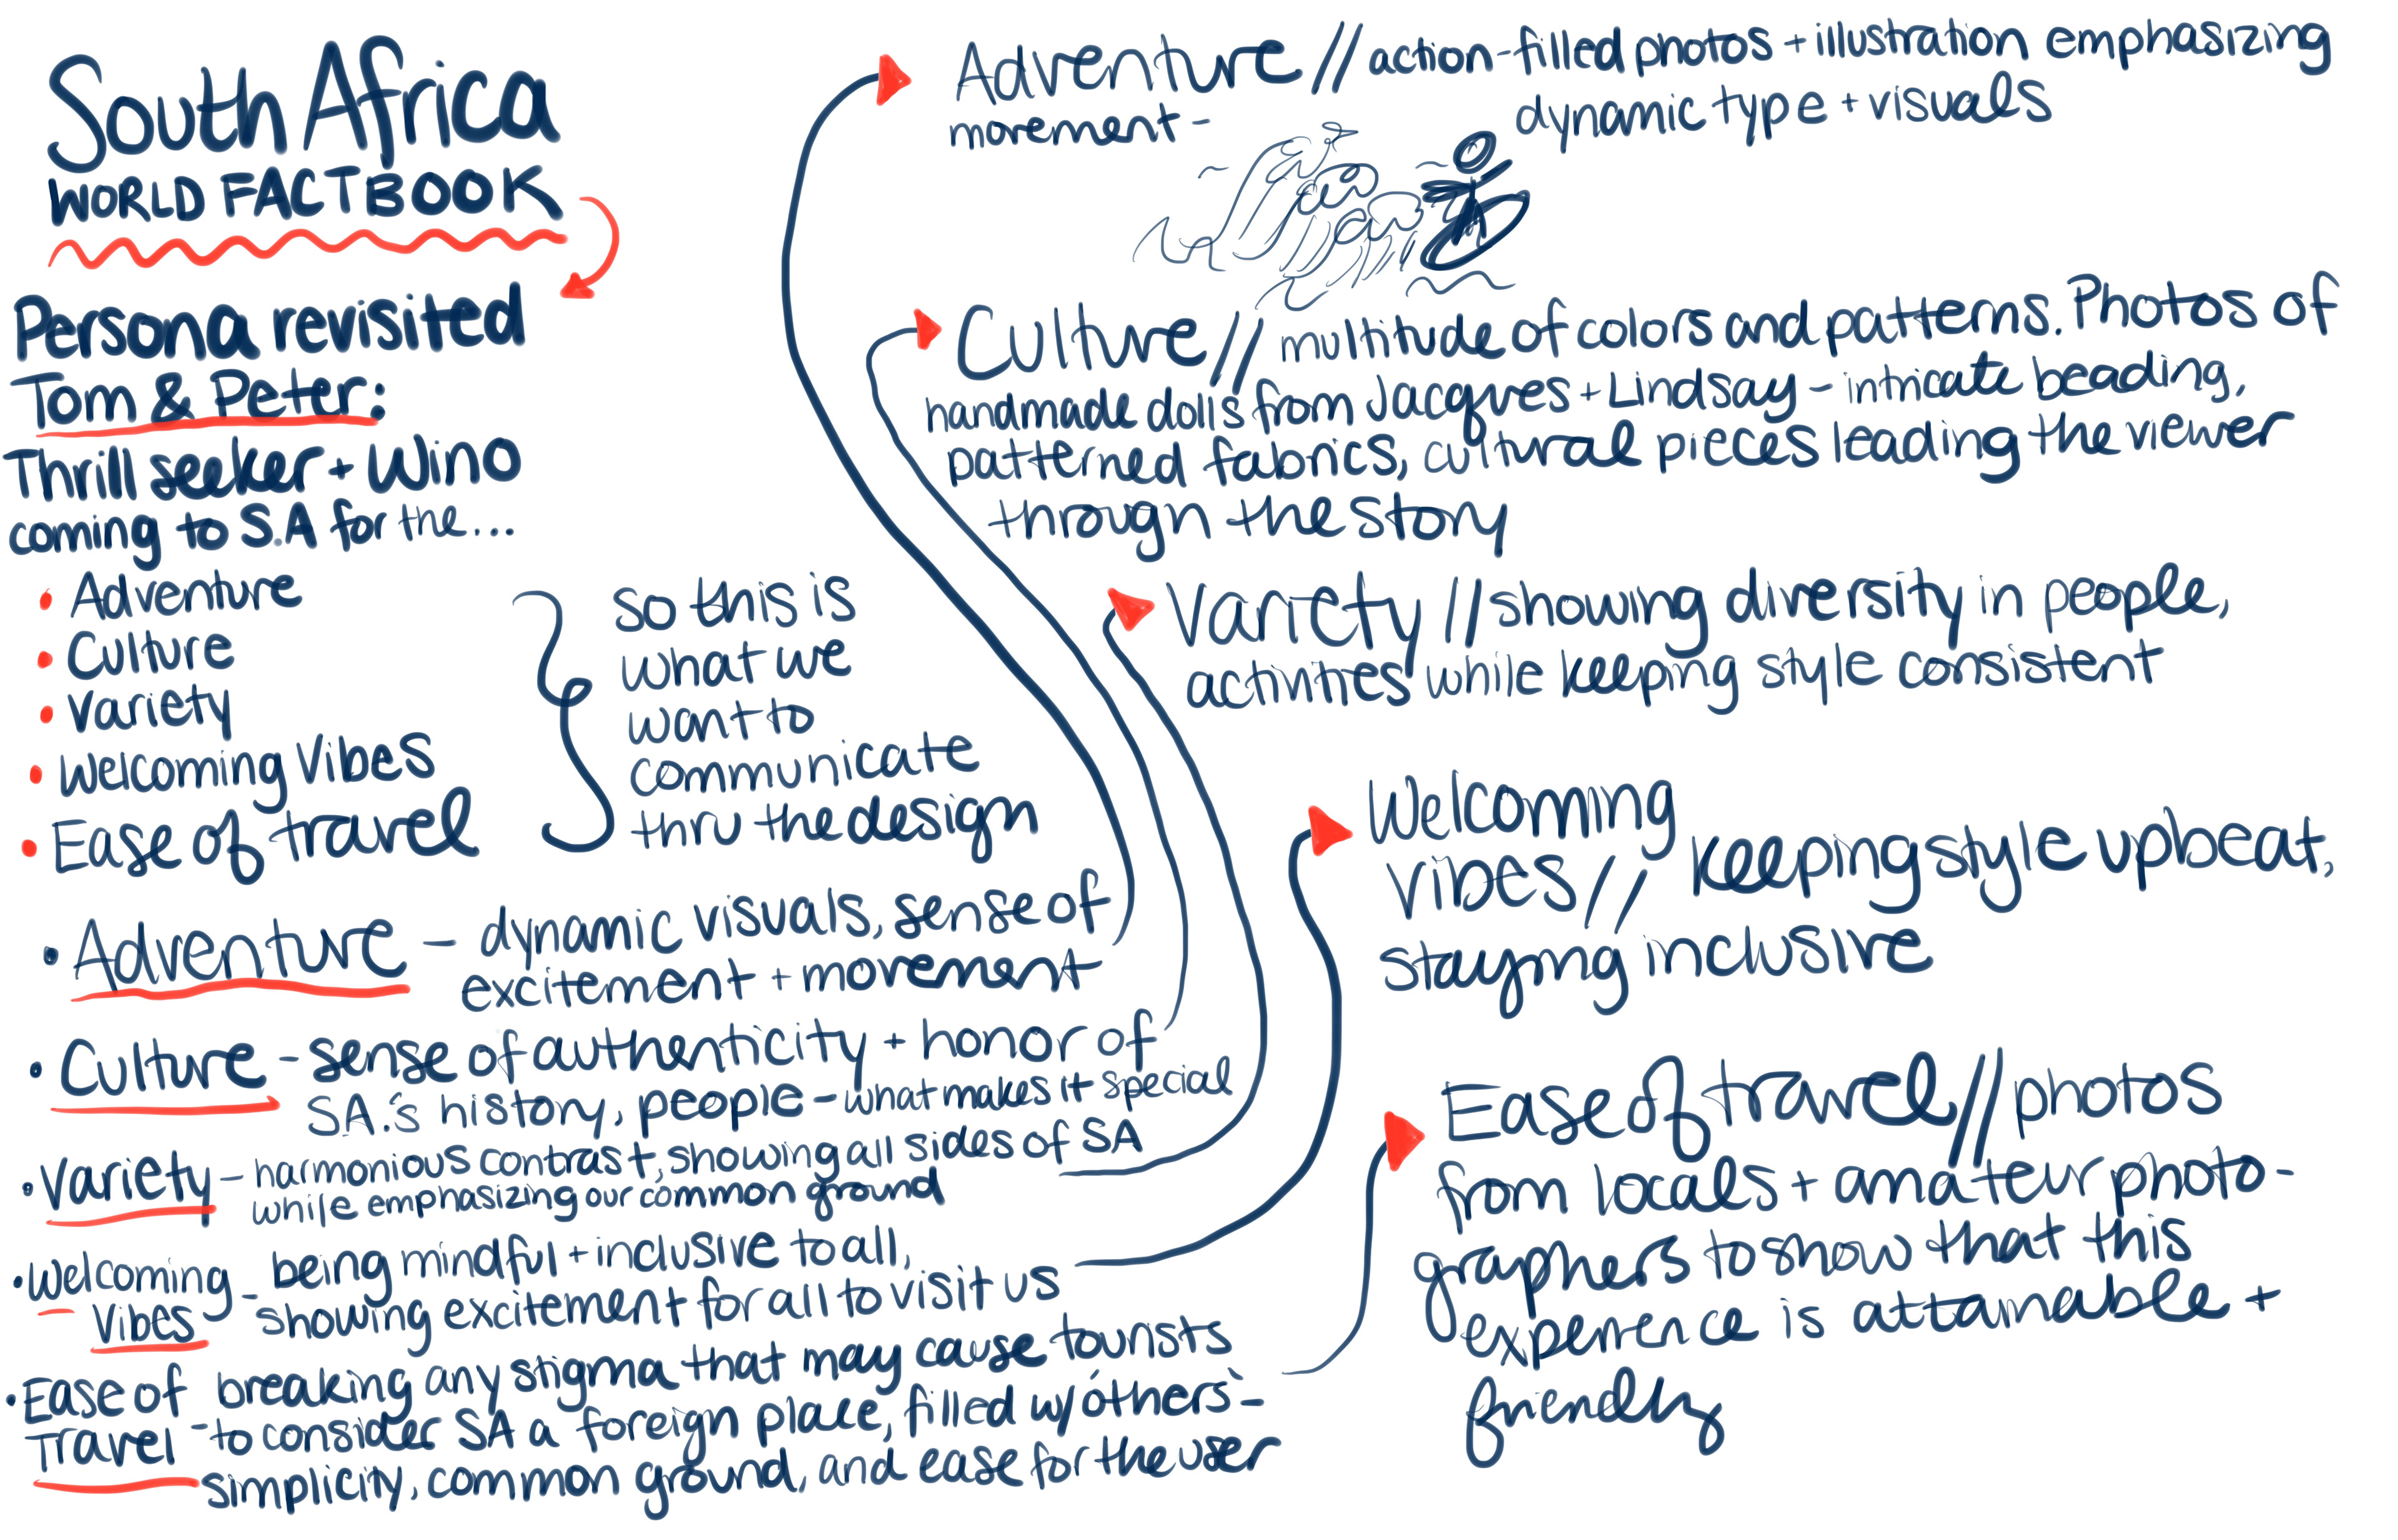 South Africa
WORLD FACTBOOK
Persona revisited
Tom & Peter:
Thrill seeker + Wino
coming to S.A for the...
• Adventure
• Culture
• Variety
• Welcoming Vibes
• Ease of travel
so this is
what we
want to
communicate
thru the design
• Adventure - dynamic visuals, sense of
excitement + movement
• Culture - sense of authenticity + honor of
SA.'s history, people - what makes it special
• Variety - harmonious contrast, showing all sides of SA
while emphasizing our common ground
• Welcoming - being mindful + inclusive to all,
Vibes showing excitement for all to visit us
• Ease of breaking any stigma that may cause tourists
Travel - to consider SA a foreign place, filled w/ 'others' -
simplicity, common ground, and ease for the user
Adventure // action-filled photos + illustration emphasizing
movement - dynamic type + visuals
Culture // multitude of colors and patterns. Photos of
handmade dolls from Jacques + Lindsay - intricate beading,
patterned fabrics, cultural pieces leading the viewer
through the story
Variety // showing diversity in people,
activities while keeping style consistent
Welcoming
vibes // keeping style upbeat,
staying inclusive
Ease of travel // photos
from locals + amateur photo-
graphers to show that this
experience is attainable +
friendly